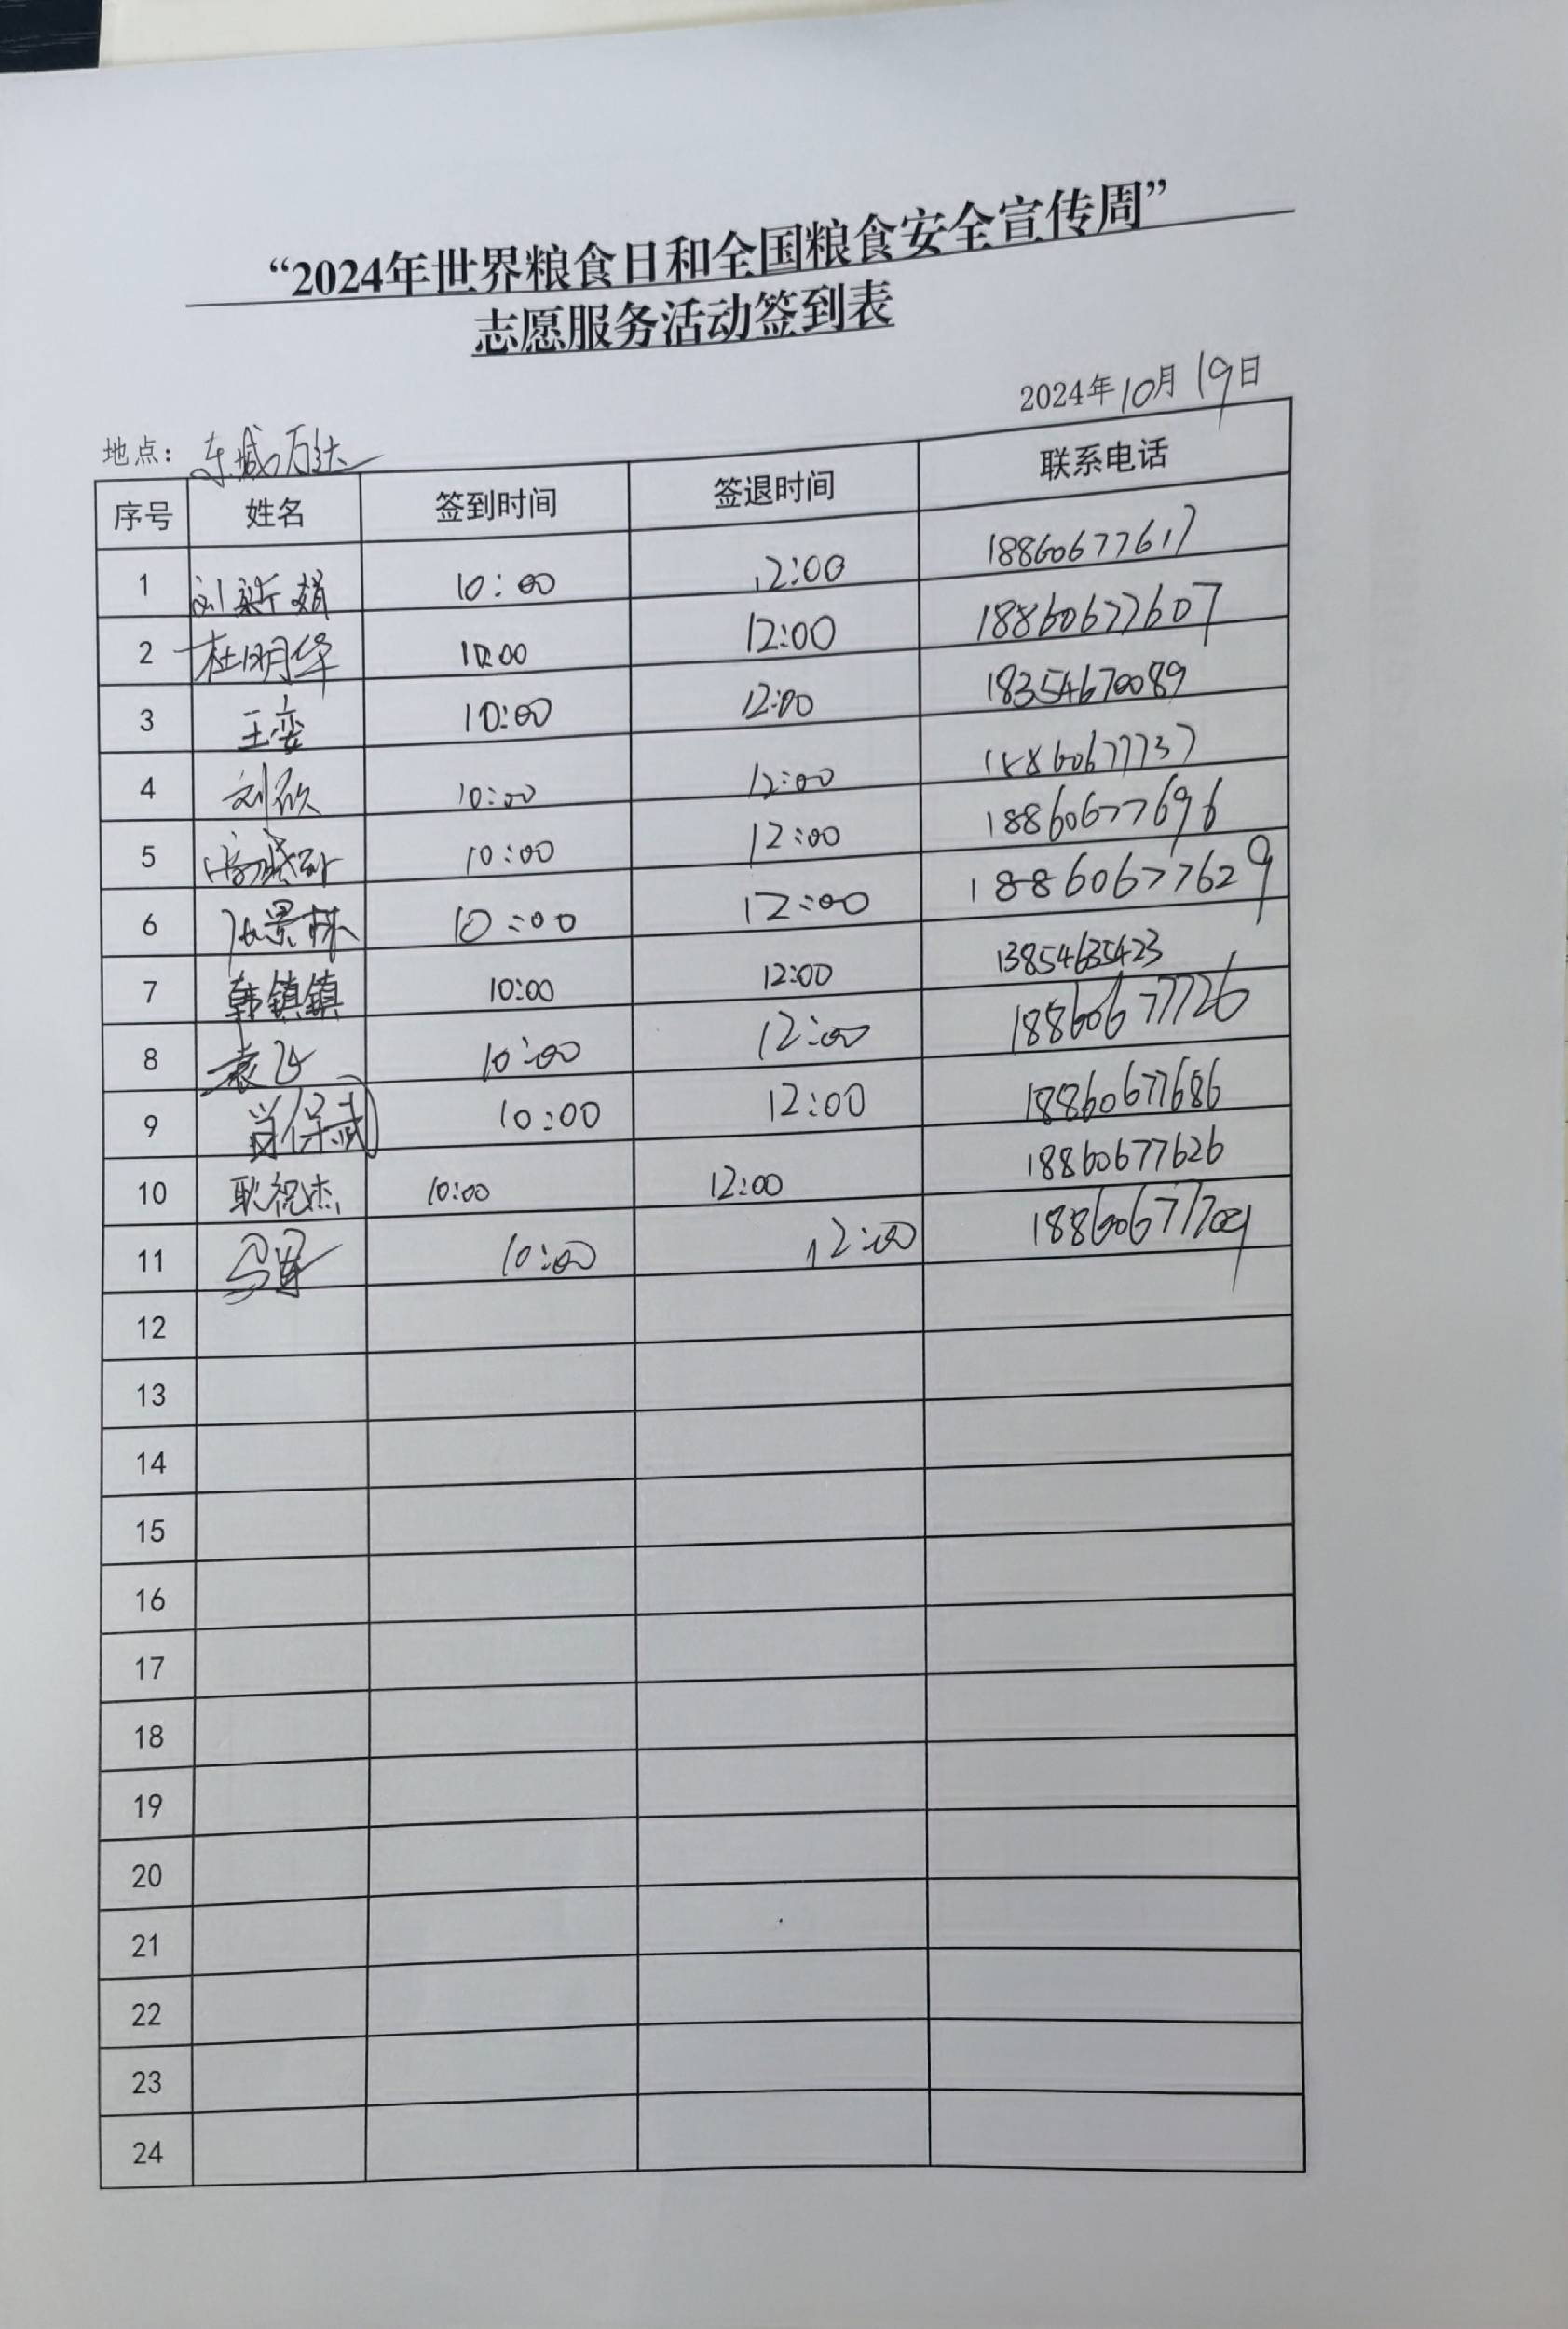 “2024年世界粮食日和全国粮食安全宣传周”
志愿服务活动签到表
2024年10月19日
地点: 东城万达
序号 姓名 签到时间 签退时间 联系电话
1 刘新娟 10:00 12:00 18860677617
2 杜明华 10:00 12:00 18860677607
3 王娈 10:00 12:00 18354670089
4 刘欣 10:00 12:00 18860677737
5 10:00 12:00 18860677696
6 张景林 10:00 12:00 18860677629
7 韩镇镇 10:00 12:00 13854635423
8 袁飞 10:00 12:00 18860677726
9 肖保武 10:00 12:00 18860677686
10 耿祝杰 10:00 12:00 18860677626
11 10:00 12:00 18860677704
12
13
14
15
16
17
18
19
20
21
22
23
24